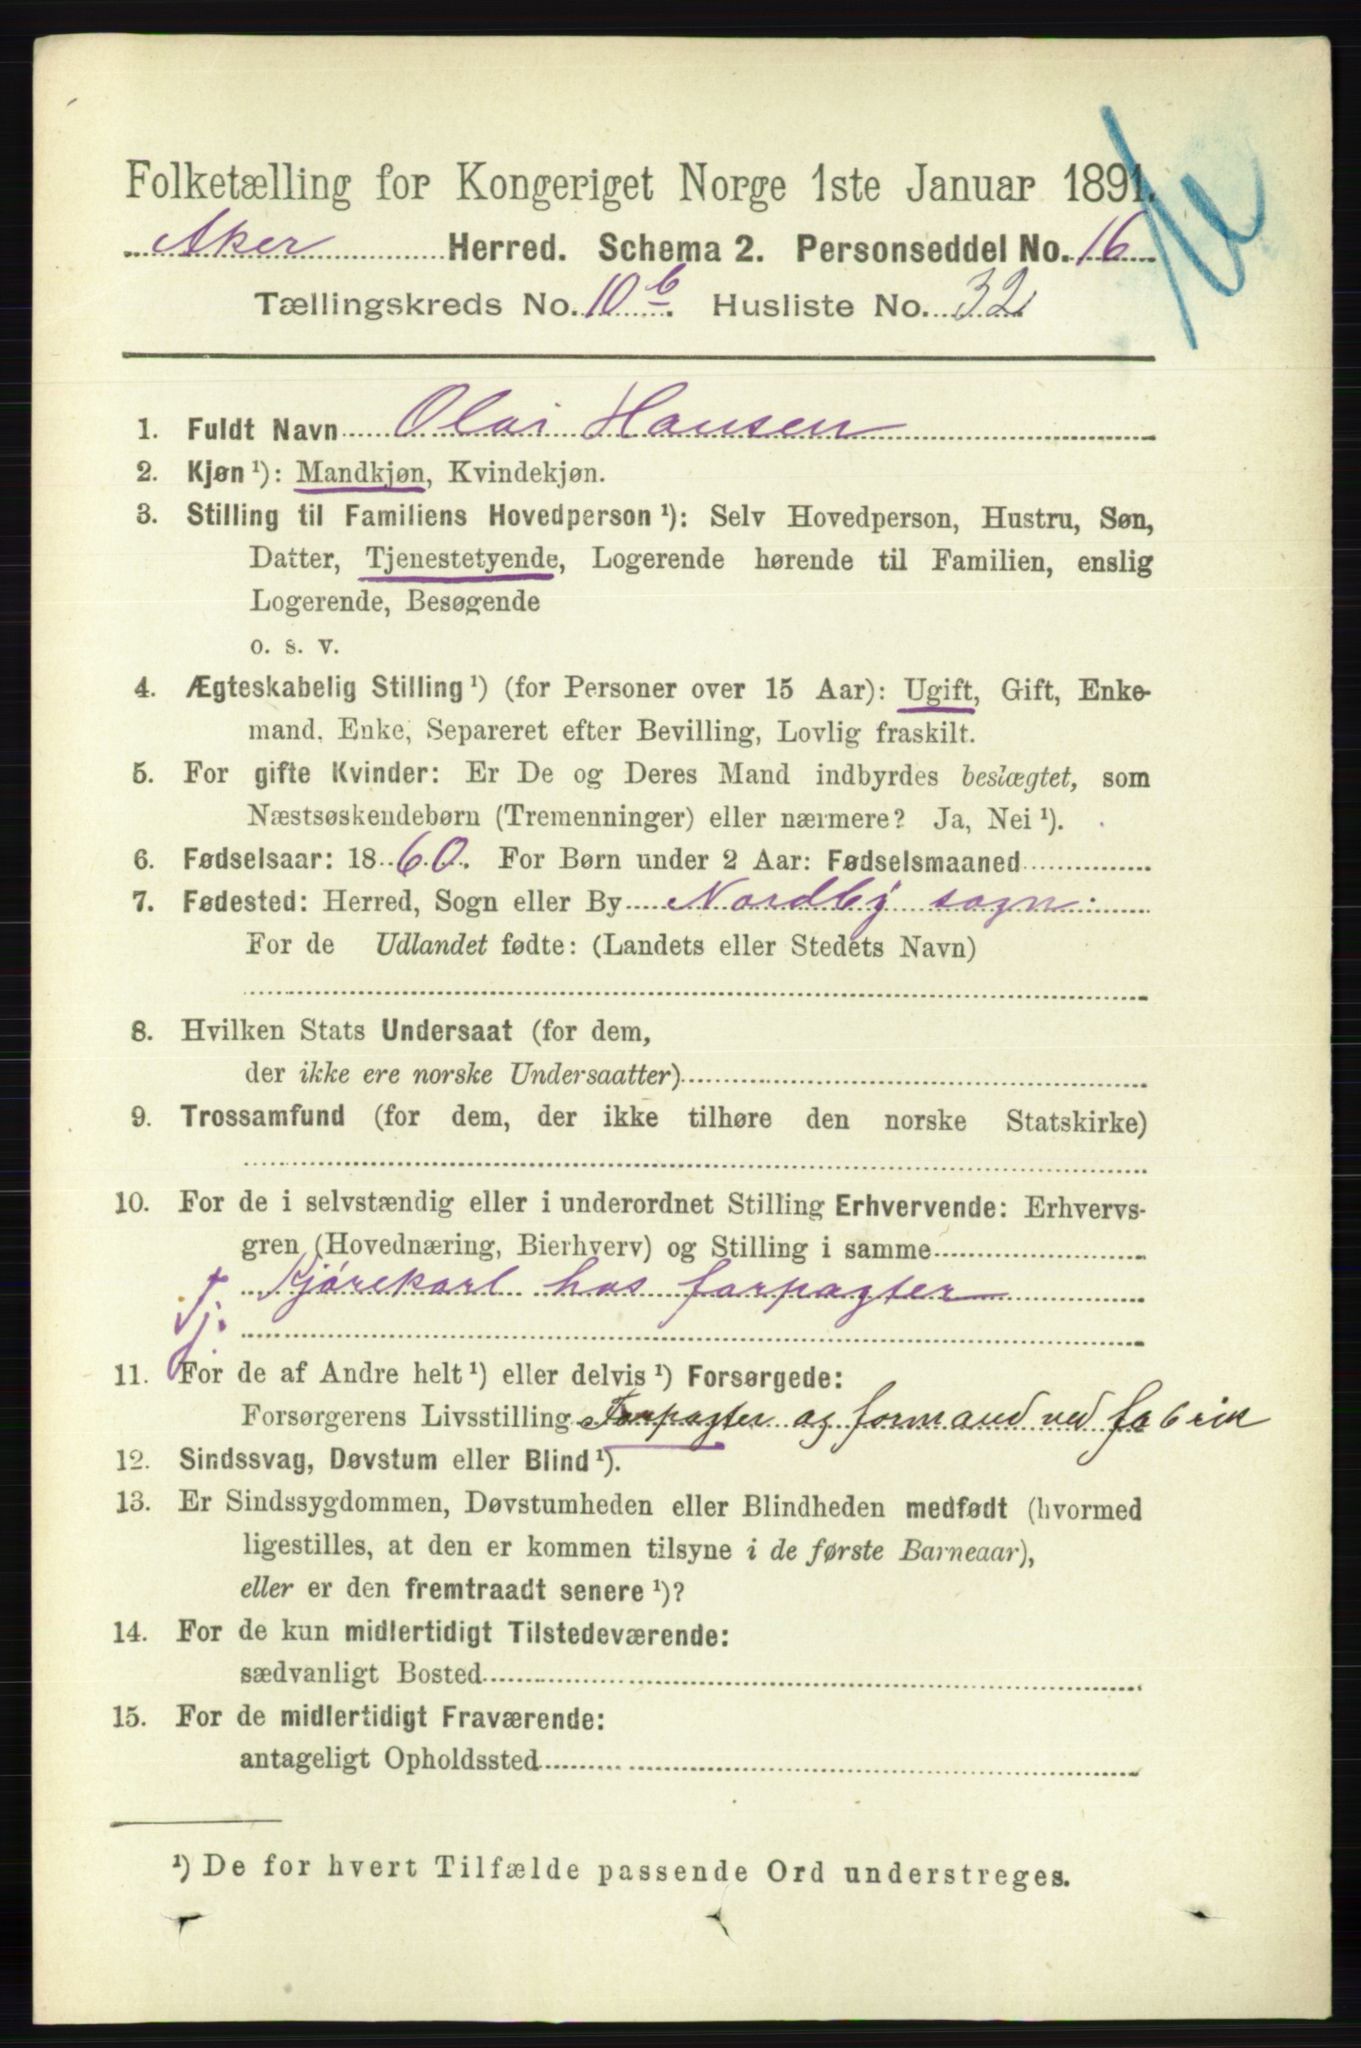 Folketælling for Kongeriget Norge 1ste Januar 1891.
Aker Herred. Schema 2. Personseddel No. 16
Tællingskreds No. 10 b. Husliste No. 32
1. Fuldt Navn Olai Hansen
2. Kjøn ¹): Mandkjøn, Kvindekjøn.
3. Stilling til Familiens Hovedperson ¹): Selv Hovedperson, Hustru, Søn,
Datter, Tjenestetyende, Logerende hørende til Familien, enslig
Logerende, Besøgende
o. s. v.
4. Ægteskabelig Stilling ¹) (for Personer over 15 Aar): Ugift, Gift, Enke-
mand, Enke, Separeret efter Bevilling, Lovlig fraskilt.
5. For gifte Kvinder: Er De og Deres Mand indbyrdes beslægtet, som
Næstsøskendebørn (Tremenninger) eller nærmere? Ja, Nei ¹).
6. Fødselsaar: 1860. For Børn under 2 Aar: Fødselsmaaned
7. Fødested: Herred, Sogn eller By Nordby sogn
For de Udlandet fødte: (Landets eller Stedets Navn)
8. Hvilken Stats Undersaat (for dem,
der ikke ere norske Undersaatter)
9. Trossamfund (for dem, der ikke tilhøre den norske Statskirke)
10. For de i selvstændig eller i underordnet Stilling Erhvervende: Erhvervs-
gren (Hovednæring, Bierhverv) og Stilling i samme
Tj. Kjørekarl hos forpagter
11. For de af Andre helt ¹) eller delvis ¹) Forsørgede:
Forsørgerens Livsstilling Forpagter og formand ved fabrik
12. Sindssvag, Døvstum eller Blind ¹).
13. Er Sindssygdommen, Døvstumheden eller Blindheden medfødt (hvormed
ligestilles, at den er kommen tilsyne i de første Barneaar),
eller er den fremtraadt senere ¹)?
14. For de kun midlertidigt Tilstedeværende:
sædvanligt Bosted
15. For de midlertidigt Fraværende:
antageligt Opholdssted
¹) De for hvert Tilfælde passende Ord understreges.